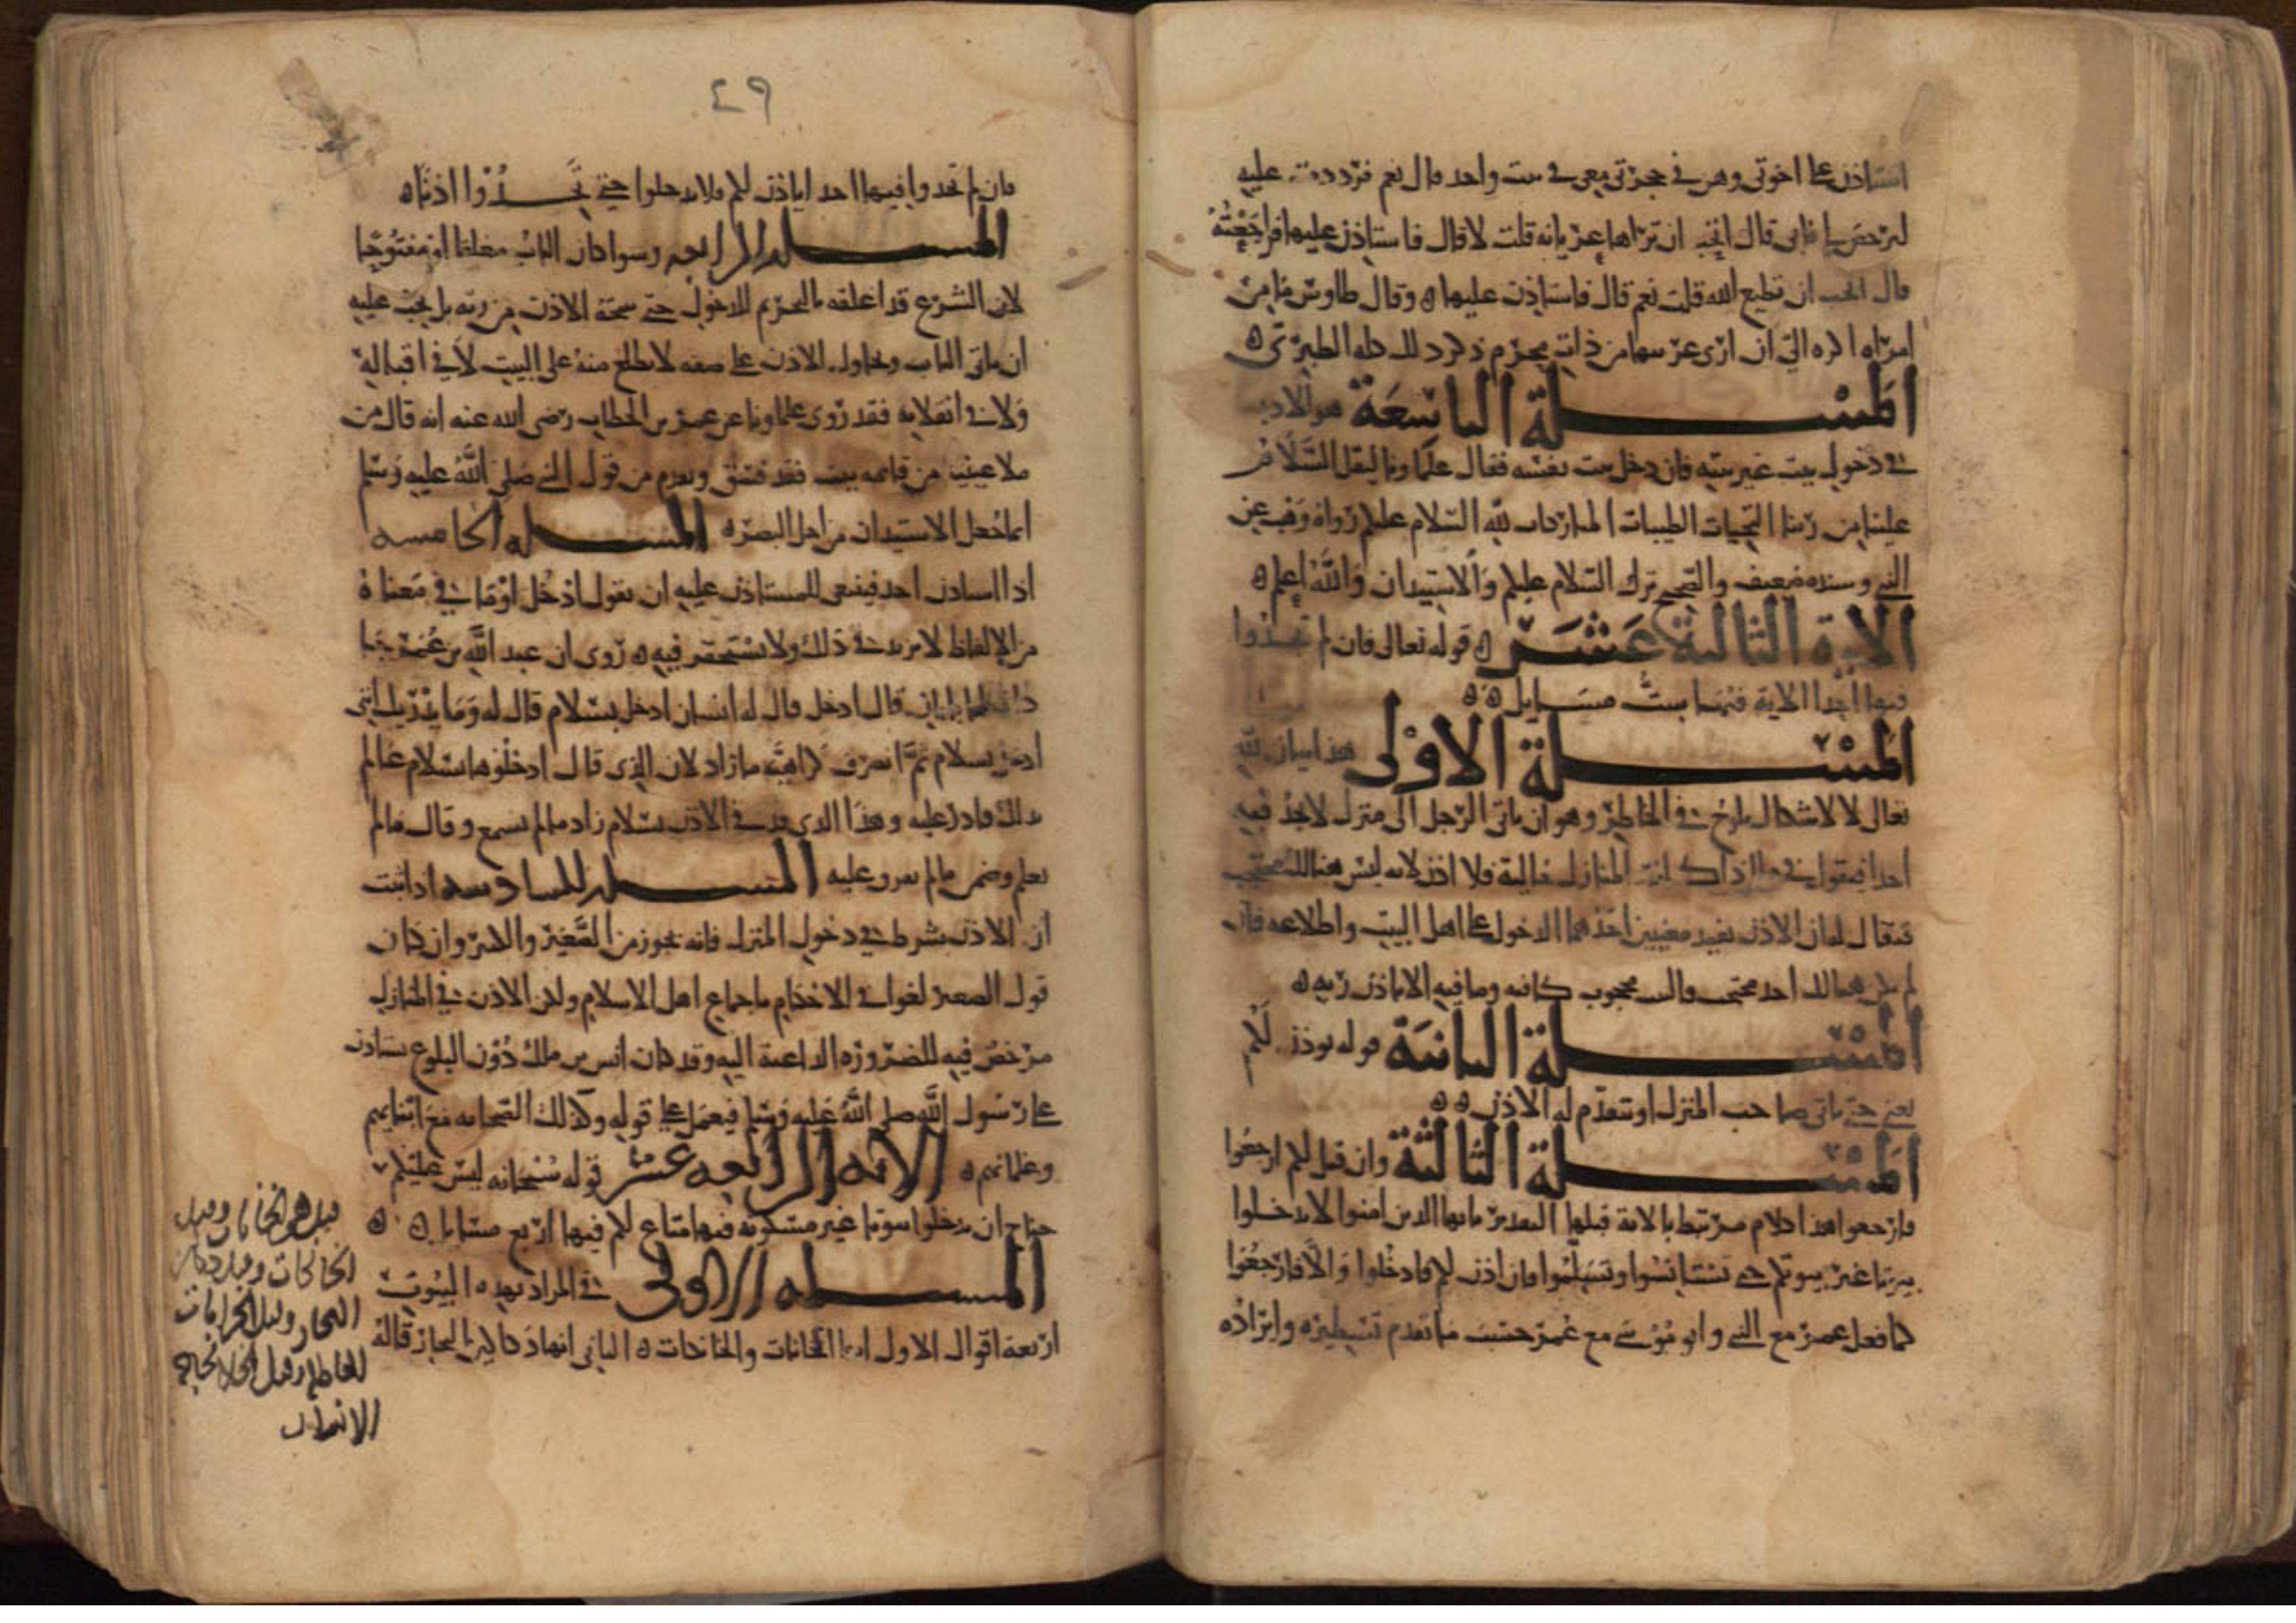 استاذن على اخوتي وهن في حجرتي معي في بيت واحد قال نعم فرددت عليه
ليرخص لي فابى قال اتحب ان تراها عريانة قلت لا قال فاستاذن عليها فراجعته
قال اتحب ان تطيع الله قلت نعم قال فاستاذن عليها ه وقال طاوس ما من
امراة اكره الي ان ارى عريتها من ذات محرم ذكر ذلك كله الطبري ه
المسئلة التاسعة هو الاذن
في دخول بيت غير بيته فان دخل بيت نفسه فقال علماونا ليقل السلام
علينا من ربنا التحيات الطيبات المباركات لله السلام عليكم رواه وهب عن
النبي وسنده ضعيف والصحيح ترك السلام عليكم والاستيذان والله اعلم ه
الاية الثالثة عشر ه قوله تعالى فان لم تجدوا
فيها احدا الاية فيها ست مسايل ه ه
المسئلة الاولى هذا بيان لله
تعالى لاشكال يلوح في الخاطر وهو ان ياتي الرجل الى منزل لا يجد فيه
احدا فيقول في اذا كانت المنازل خالية فلا اذن لانه ليس هنالك محتجب
فيقال له ان الاذن يفيد معنيين احدهما الدخول على اهل البيت واطلاعه فان
لم يكن هنالك احد محتجب والبيت محجوب كانه وما فيه الا باذن ربه ه
المسئلة الثانية قوله يوذن لكم
يعني حتى ياتي صاحب المنزل او يتقدم له الاذن ه ه
المسئلة الثالثة وان قيل لكم ارجعوا
فارجعوا هذا كلام مرتبط بالاية قبلها التقدير يايها الذين امنوا لا تدخلوا
بيوتا غير بيوتكم حتى تستانسوا وتسلموا فان اذن لكم فادخلوا والا فارجعوا
كما فعل عمر مع النبي وابو موسى مع عمر حسب ما تقدم تسطيره وايراده
٤٩
فان لم تجدوا فيها احدا ياذن لكم فلا تدخلوا حتى تجدوا اذنا ه
المسئلة الرابعة وسوا كان الباب مغلقا او مفتوحا
لان الشرع قد اغلقه بالتحريم للدخول حتى يفتحه الاذن من ربه بل يجب عليه
ان ياتي الباب ويحاول الاذن على صفة لا يطلع منه على البيت لا في اقباله
ولا في انقلابه فقد روى علماونا عن عمر بن الخطاب رضي الله عنه انه قال من
ملا عينيه من قاعة بيت فقد فسق وتقدم من قول النبي صلى الله عليه وسلم
انما جعل الاستيذان من اجل البصر ه المسئلة الخامسة
اذا استاذن احد فينبغي للمستاذن عليه ان يقول ادخل او ما في معناه
من الالفاظ لا يزيد في ذلك ولا يستحقر فيه ه روي ان عبد الله بن عمر جا
دارا لها بابان قال ادخل قال له انسان ادخل بسلام قال له وما يدريك اني
ادخل بسلام ثم انصرف كراهية ما زاد لان الذي قال ادخلوها بسلام عالم
بذلك قادر عليه وهذا الذي زيد في الاذن بسلام زاد ما لم يسمع وقال ما لم
يعلم وضمن ما لم يقدر عليه المسئلة السادسة اذا ثبت
ان الاذن بشرط في دخول المنزل فانه يجوز من الصغير والكبير وان كان
قول الصغير لغوا في الاحكام باجماع اهل الاسلام ولكن الاذن في المنازل
مرخص فيه للضرورة الداعية اليه وقد كان انس بن ملك دون البلوغ يستاذن
على رسول الله صلى الله عليه وسلم فيعمل على قوله وكذلك الصحابة مع ابنايهم
وغلمانهم ه الاية الرابعة عشر قوله سبحانه ليس عليكم
جناح ان تدخلوا بيوتا غير مسكونة فيها متاع لكم فيها اربع مسايل ه ه
المسئلة الاولى في المراد بهذه البيوت
اربعة اقوال الاول انها الخانات والخانكات ه الثاني انها دكاكين التجار قاله
قيل هي الخانات وقيل
الخانكات وقيل دكاكين
التجار وقيل الخرابات
للغايط وقيل